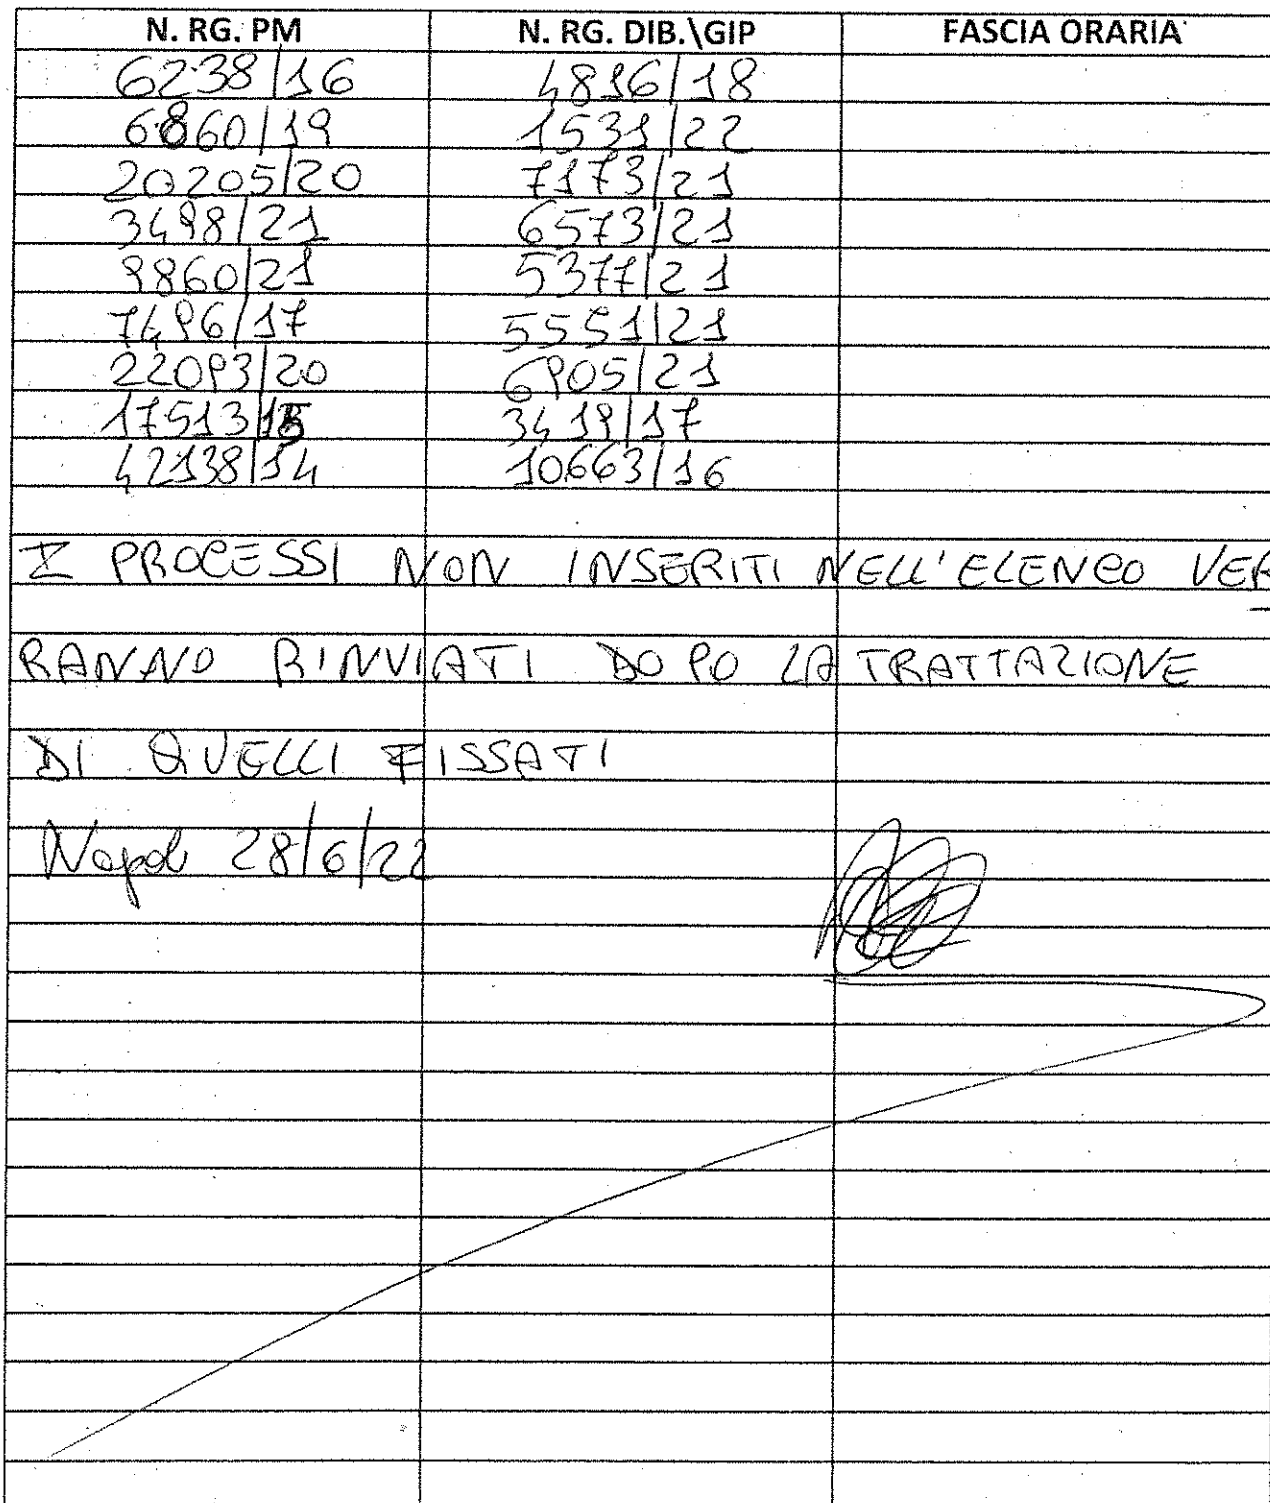 N. RG. PM N. RG. DIB.\GIP FASCIA ORARIA
6238/16 4816/18
6860/19 1531/22
20205/20 7173/21
3498/21 6573/21
9860/21 5377/21
7496/17 5551/21
22093/20 6905/21
17513/15 3419/17
42138/14 10663/16
I PROCESSI NON INSERITI NELL'ELENCO VER
RANNO RINVIATI DOPO LA TRATTAZIONE
DI QUELLI FISSATI
Napoli 28/6/22